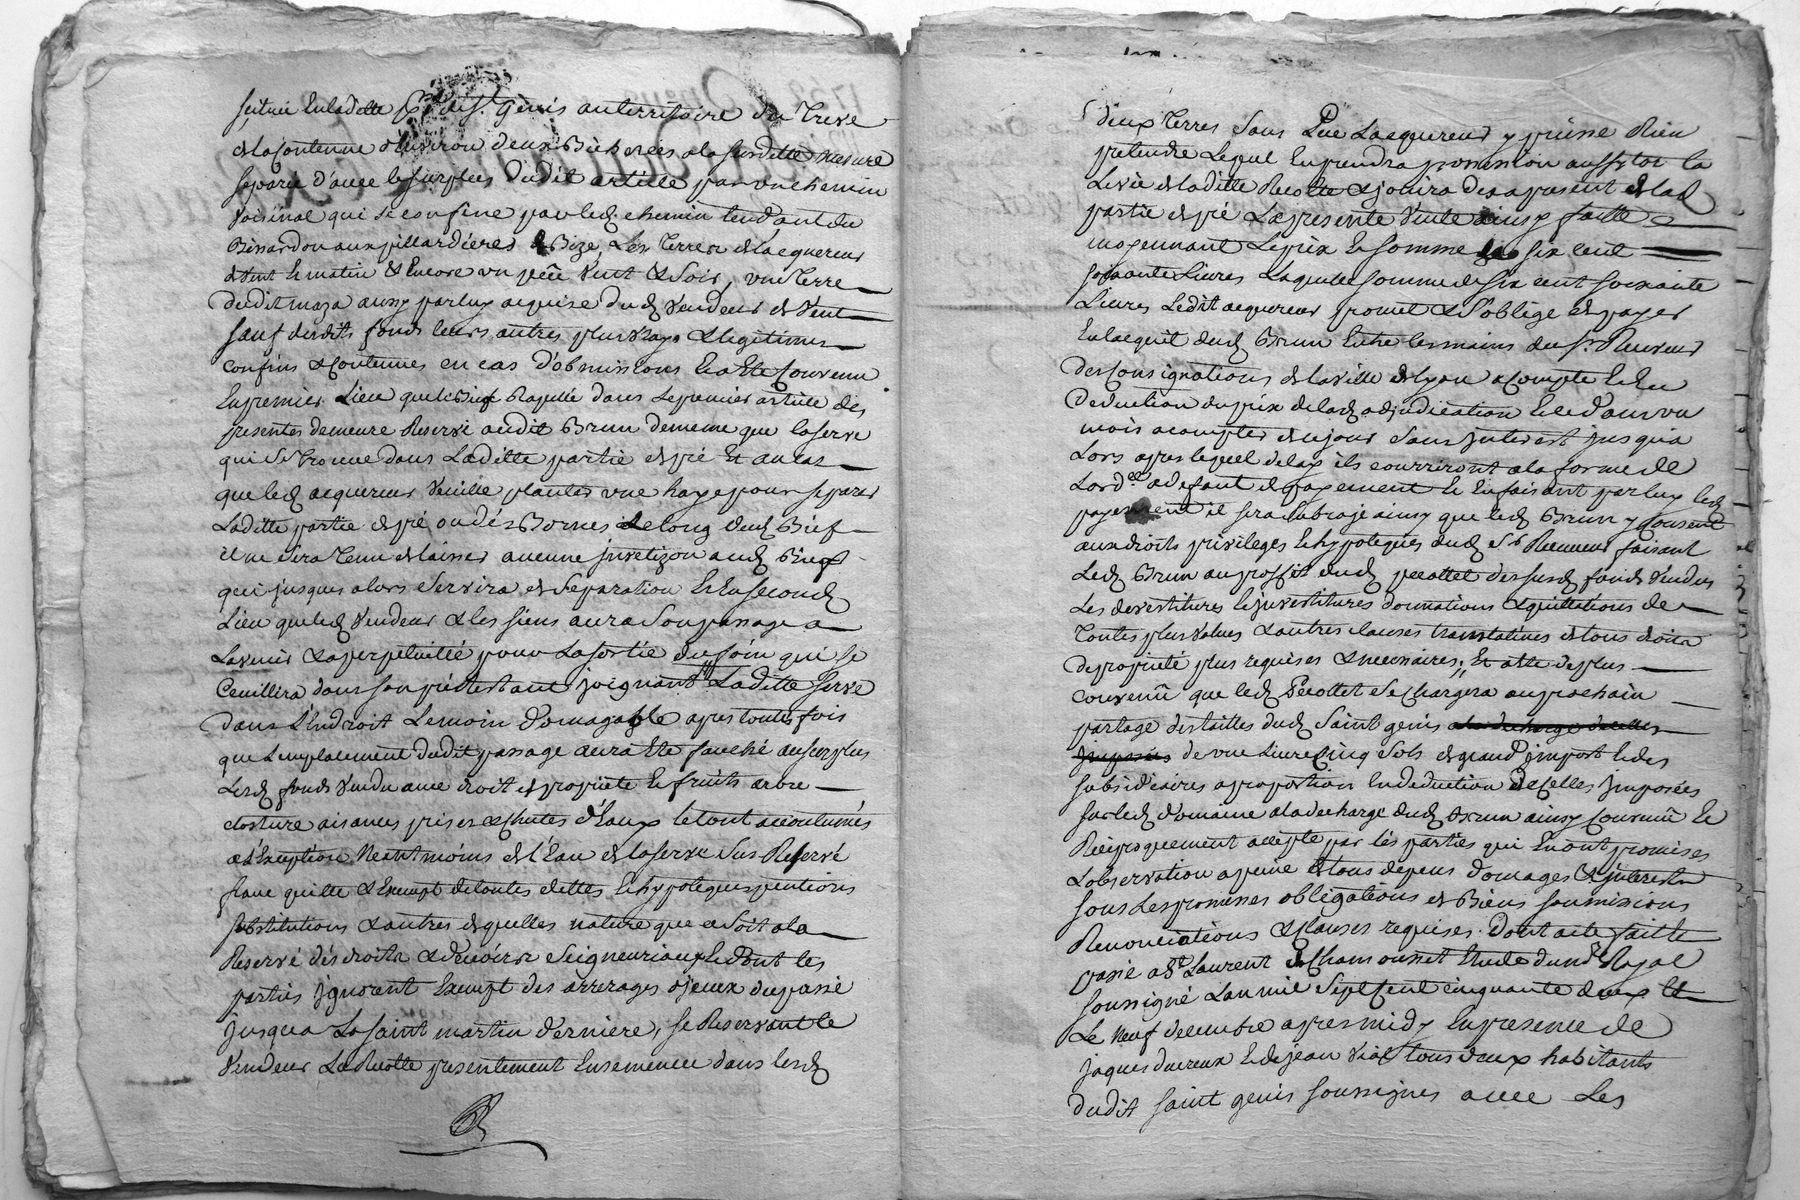 scituée en laditte p.sse de St. Genis au territoire du Treve
de la Contenue d'environ deux Bicherées a la susditte mesure
separée d'avec le surplus dudit article par un chemin
voisinal qui se confine par led. chemin tendant du
Bessardon aux pillardieres de Bize, les terres de l'acquereur
de vent et matin & Encore un peu vent & Soir, une terre
dudit maza aussy par luy acquise dud. vendeur de Vent
sauf desdits fonds leurs autres plus vrays & legitimes
confins & Contenues en cas d'obmissions il a Eté Convenu
En premier Lieu que le Bief Rapellé dans le premier article des
presentes demeure Reservé audit Brun de meme que la serve
qui se trouve dans Laditte partie de pré Et au cas
que led. acquereur veuille planter une haye pour separer
Laditte partie de pré ou des Bornes Le long dud. Bief
il ne sera tenu de laisser aucune aud. Bief
qui jusques alors Servira de Separation Et En second
Lieu que led. vendeur & les siens aura Son passage a
L'avenir & a perpetuitée pour La sortie du foin qui se
Ceuillira dans son pré restant joignant Laditte Serve
dans L'Endroit Le moin domagable apres toutes fois
que L'emplacement dudit passage aura Eté fauché au surplus
Lesd. fonds vendu avec droit de proprieté et fruits arbre
closture aisances prises & Chutes d'Eaux le tout accoutumés
a L'Exception Neantmoins de l'Eau de la serve sus Reservé
franc quitte & Exempt de toutes dettes et hypoteques pentions
substitutions & autres de quelles nature que ce Soit a la
Reservé des droits & devoirs Seigneuriaux Et dont les
parties Ignorant Exempt des arrerages d'iceux du passé
Jusqu'a La saint martin derniere, se Reservant le
Vendeur La Recolte presentement Ensemencé dans lesd.
deux Terres Sans Que L'acquereur y puisse Rien
pretendre Lequel En prendra possession aussytot la
Levée de laditte Recolte & jouira des a present de lad.
partie de pré La presente Vente ainsy faitte
moyennant Le prix Et somme de six cent
soixante Livres Laquelle somme de six cent soixante
Livres Ledit acquereur promet & s'oblige de payer
En l'acquit dud. Brun Entre les mains du Sr. Receveur
des Consignations de la ville de Lyon a Compte Et En
Deduction du prix de lad. adjudication Et ce d'aujourd'huy en un
mois a compter de ce jour Sans Interest jusqu'a
Lors apres lequel delay ils courriront a la forme de
Lord.ce a defaut de payement Et En faisant par luy led.
payement il sera Subrogé ainsy que led. Brun y Consent
aux droits privileges Et hypoteques dud. Sr. Receveur faisant
Led. Brun au proffit dud. perottet des susd. fonds Vendus
Les devestitures Et Investitures donnations & quittations de
Toutes plus values & autres clauses translatives de tous droits
de proprieté plus requises & necessaires; Et a Eté de plus
convenu que led. Perottet se Chargera au prochain
partage des tailles dud. Saint genis a la decharge de celles
Imposées de une Livre Cinq Sols de grand Import Et des
subsidiaires a proportion En deduction de Celles Imposées
sur led. domaine a la decharge dud. Brun ainsy Convenu Et
Reciproquement accepté par les parties qui En ont promises
L'observation a peine de tous depens domages & Interests
sous Les promesses obligations de Biens soumissions
Renonciations & Clauses requises. dont acte faitte
passé a St. Laurent de Chamousset Etude du nr.e Royal
soussigné L'an mil Sept Cent cinquante deux Et
Le neuf decembre apres midy En presence de
Jaques ducreux Et de jean vial tous deux habitants
dudit saint genis soussignes avec Les